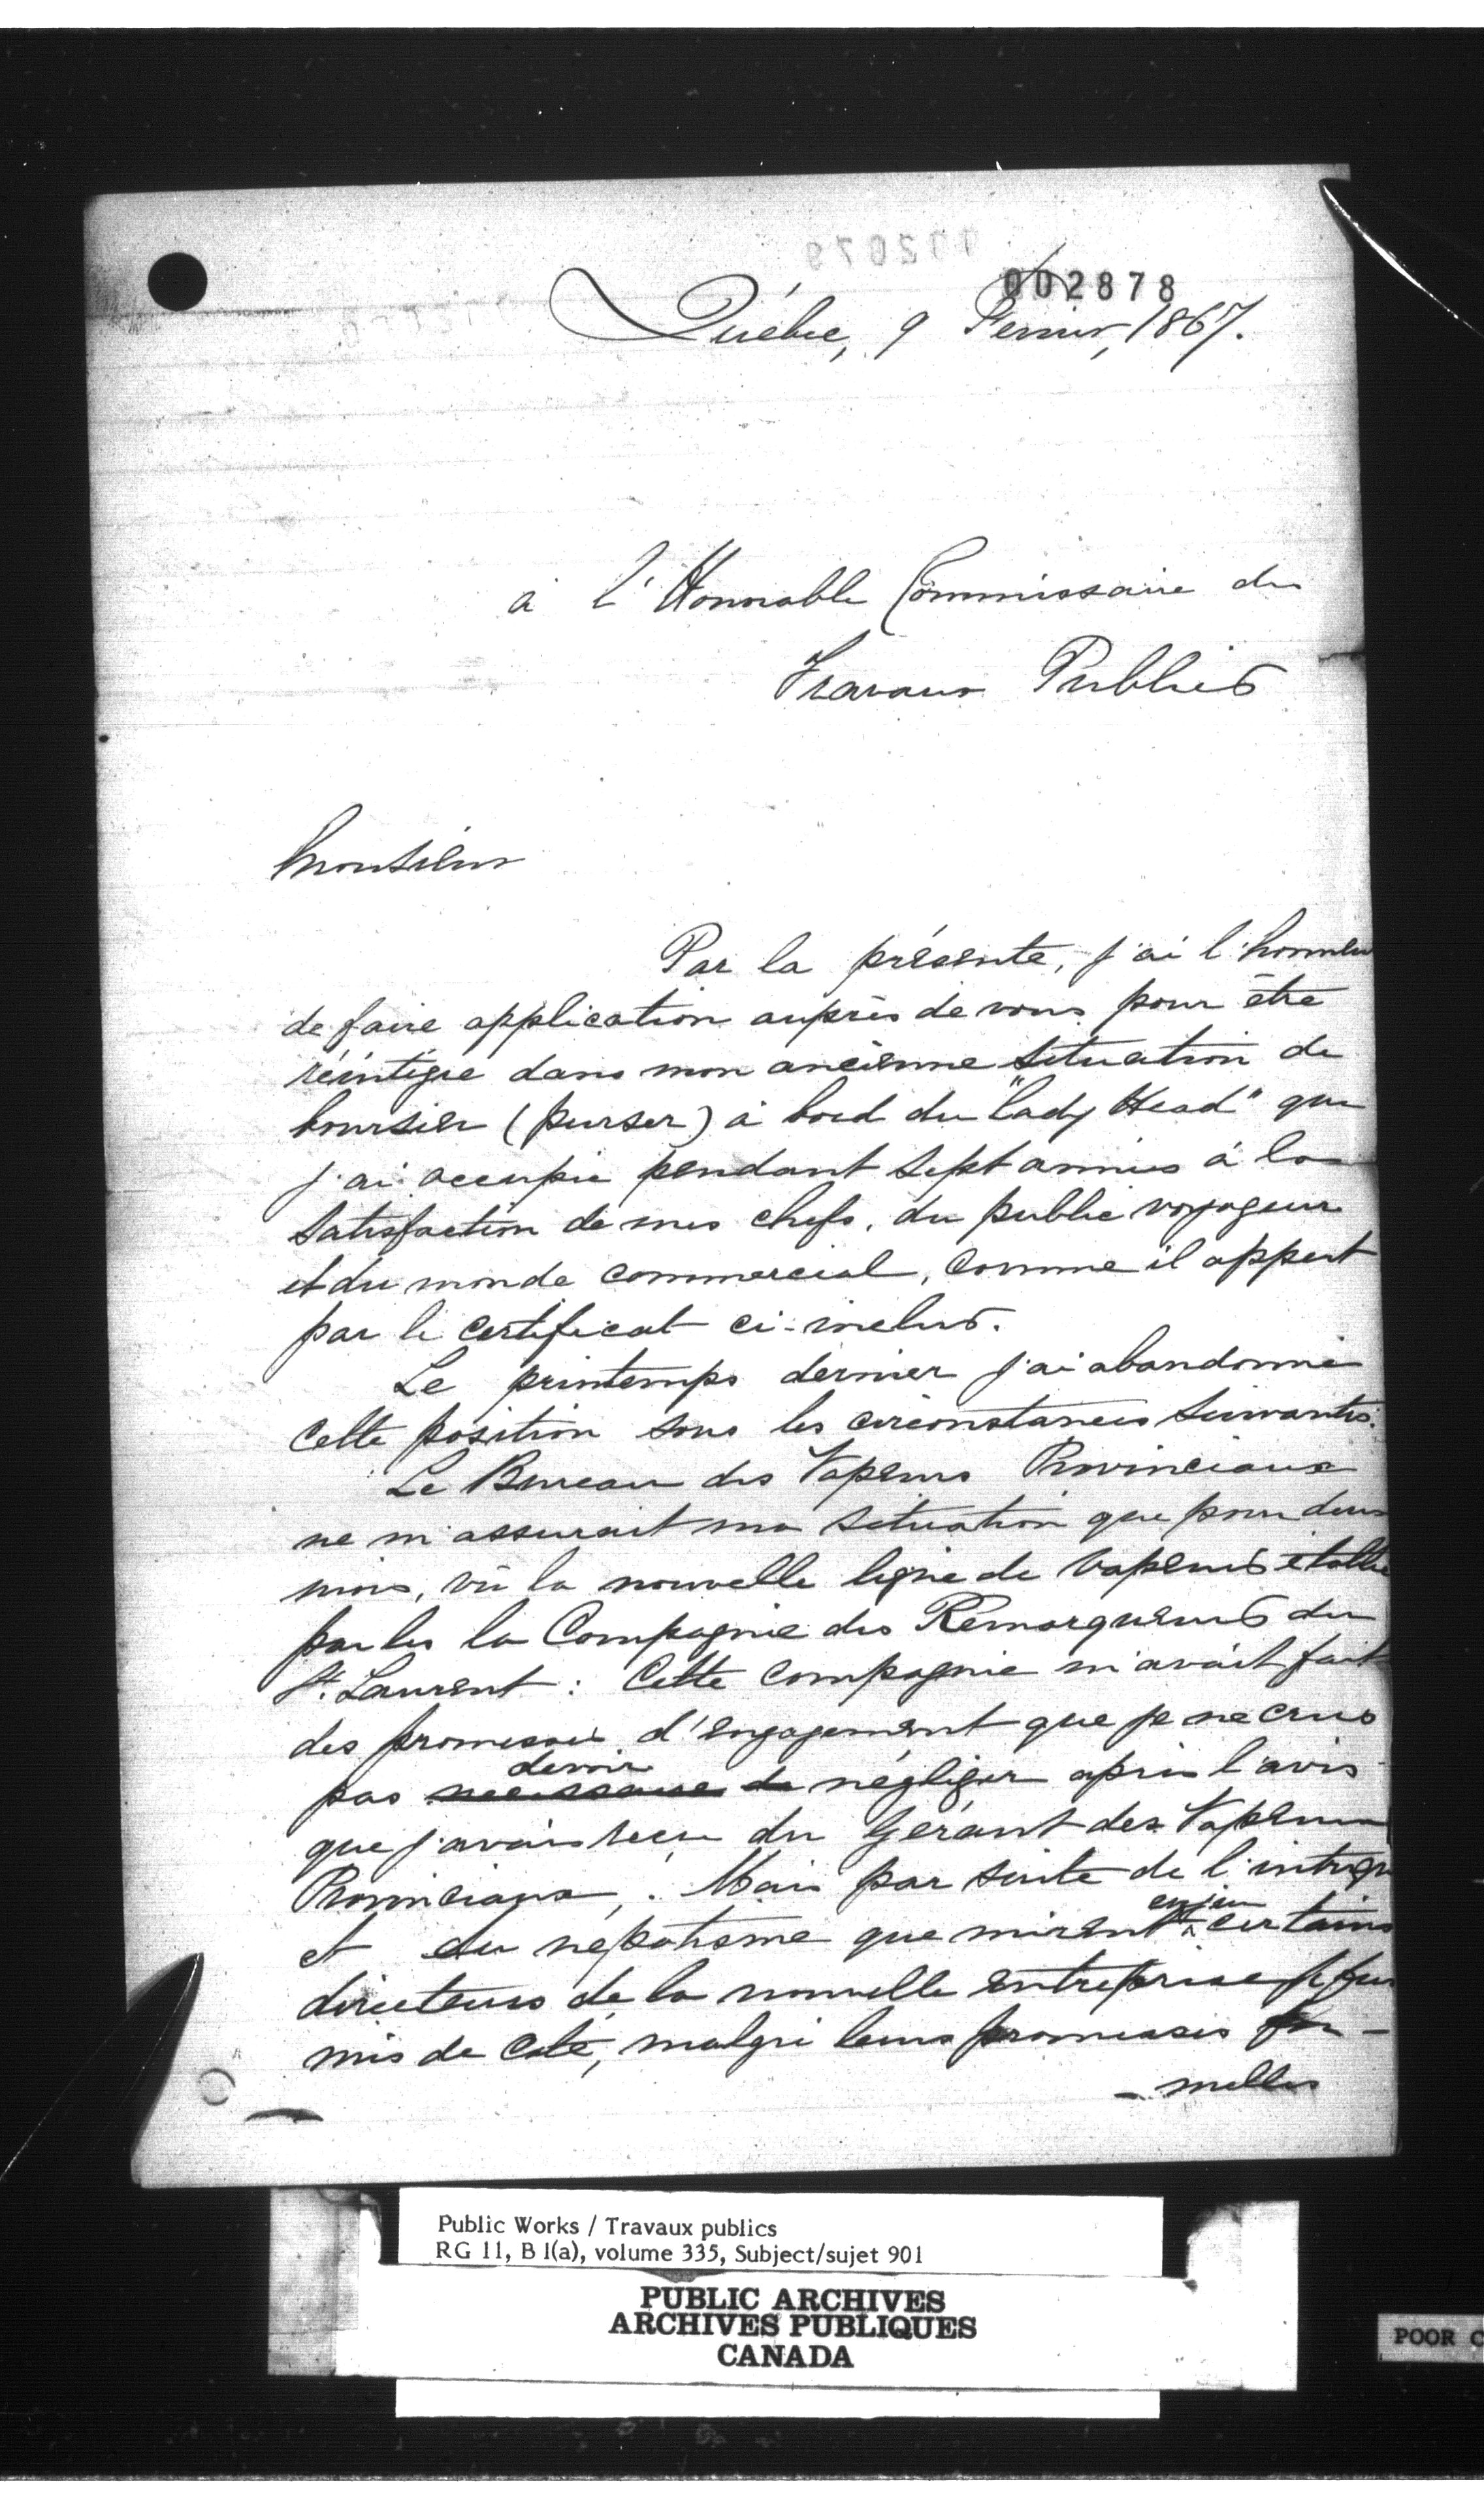 002878
Québec, 9 Fevrier, 1867.
à l'Honorable Commissaire des
Travaux Publics
Monsieur
Par la présente, j'ai l'honneur
de faire application auprès de vous pour être
réintégré dans mon ancienne situation de
boursier (purser) à bord du "Lady Head" que
j'ai occupée pendant sept années à la
satisfaction de mes chefs, du public voyageur
et du monde commercial, comme il appert
par le certificat ci-inclus.
Le printemps dernier j'ai abandonné
cette position sous les circonstances suivantes:
Le Bureau des Vapeurs Provinciaux
ne m'assurait ma situation que pour deux
mois, vû la nouvelle ligne de vapeurs établie
par les la Compagnie des Remorqueurs du
St. Laurent: Cette compagnie m'avait fait
des promesses d'engagement que je ne crus
devoir
pas necessaire de négliger après l'avis
que j'avais reçu du Gérant des Vapeurs
Provinciaux. Mais par suite de l'intrigue
en jeu
et du népotisme que mirent certains
directeurs de la nouvelle entreprise je fus
mis de coté, malgré leurs promesses for-
-melles
Public Works / Travaux publics
RG 11, B 1(a), volume 335, Subject/sujet 901
PUBLIC ARCHIVES
ARCHIVES PUBLIQUES
CANADA
POOR C